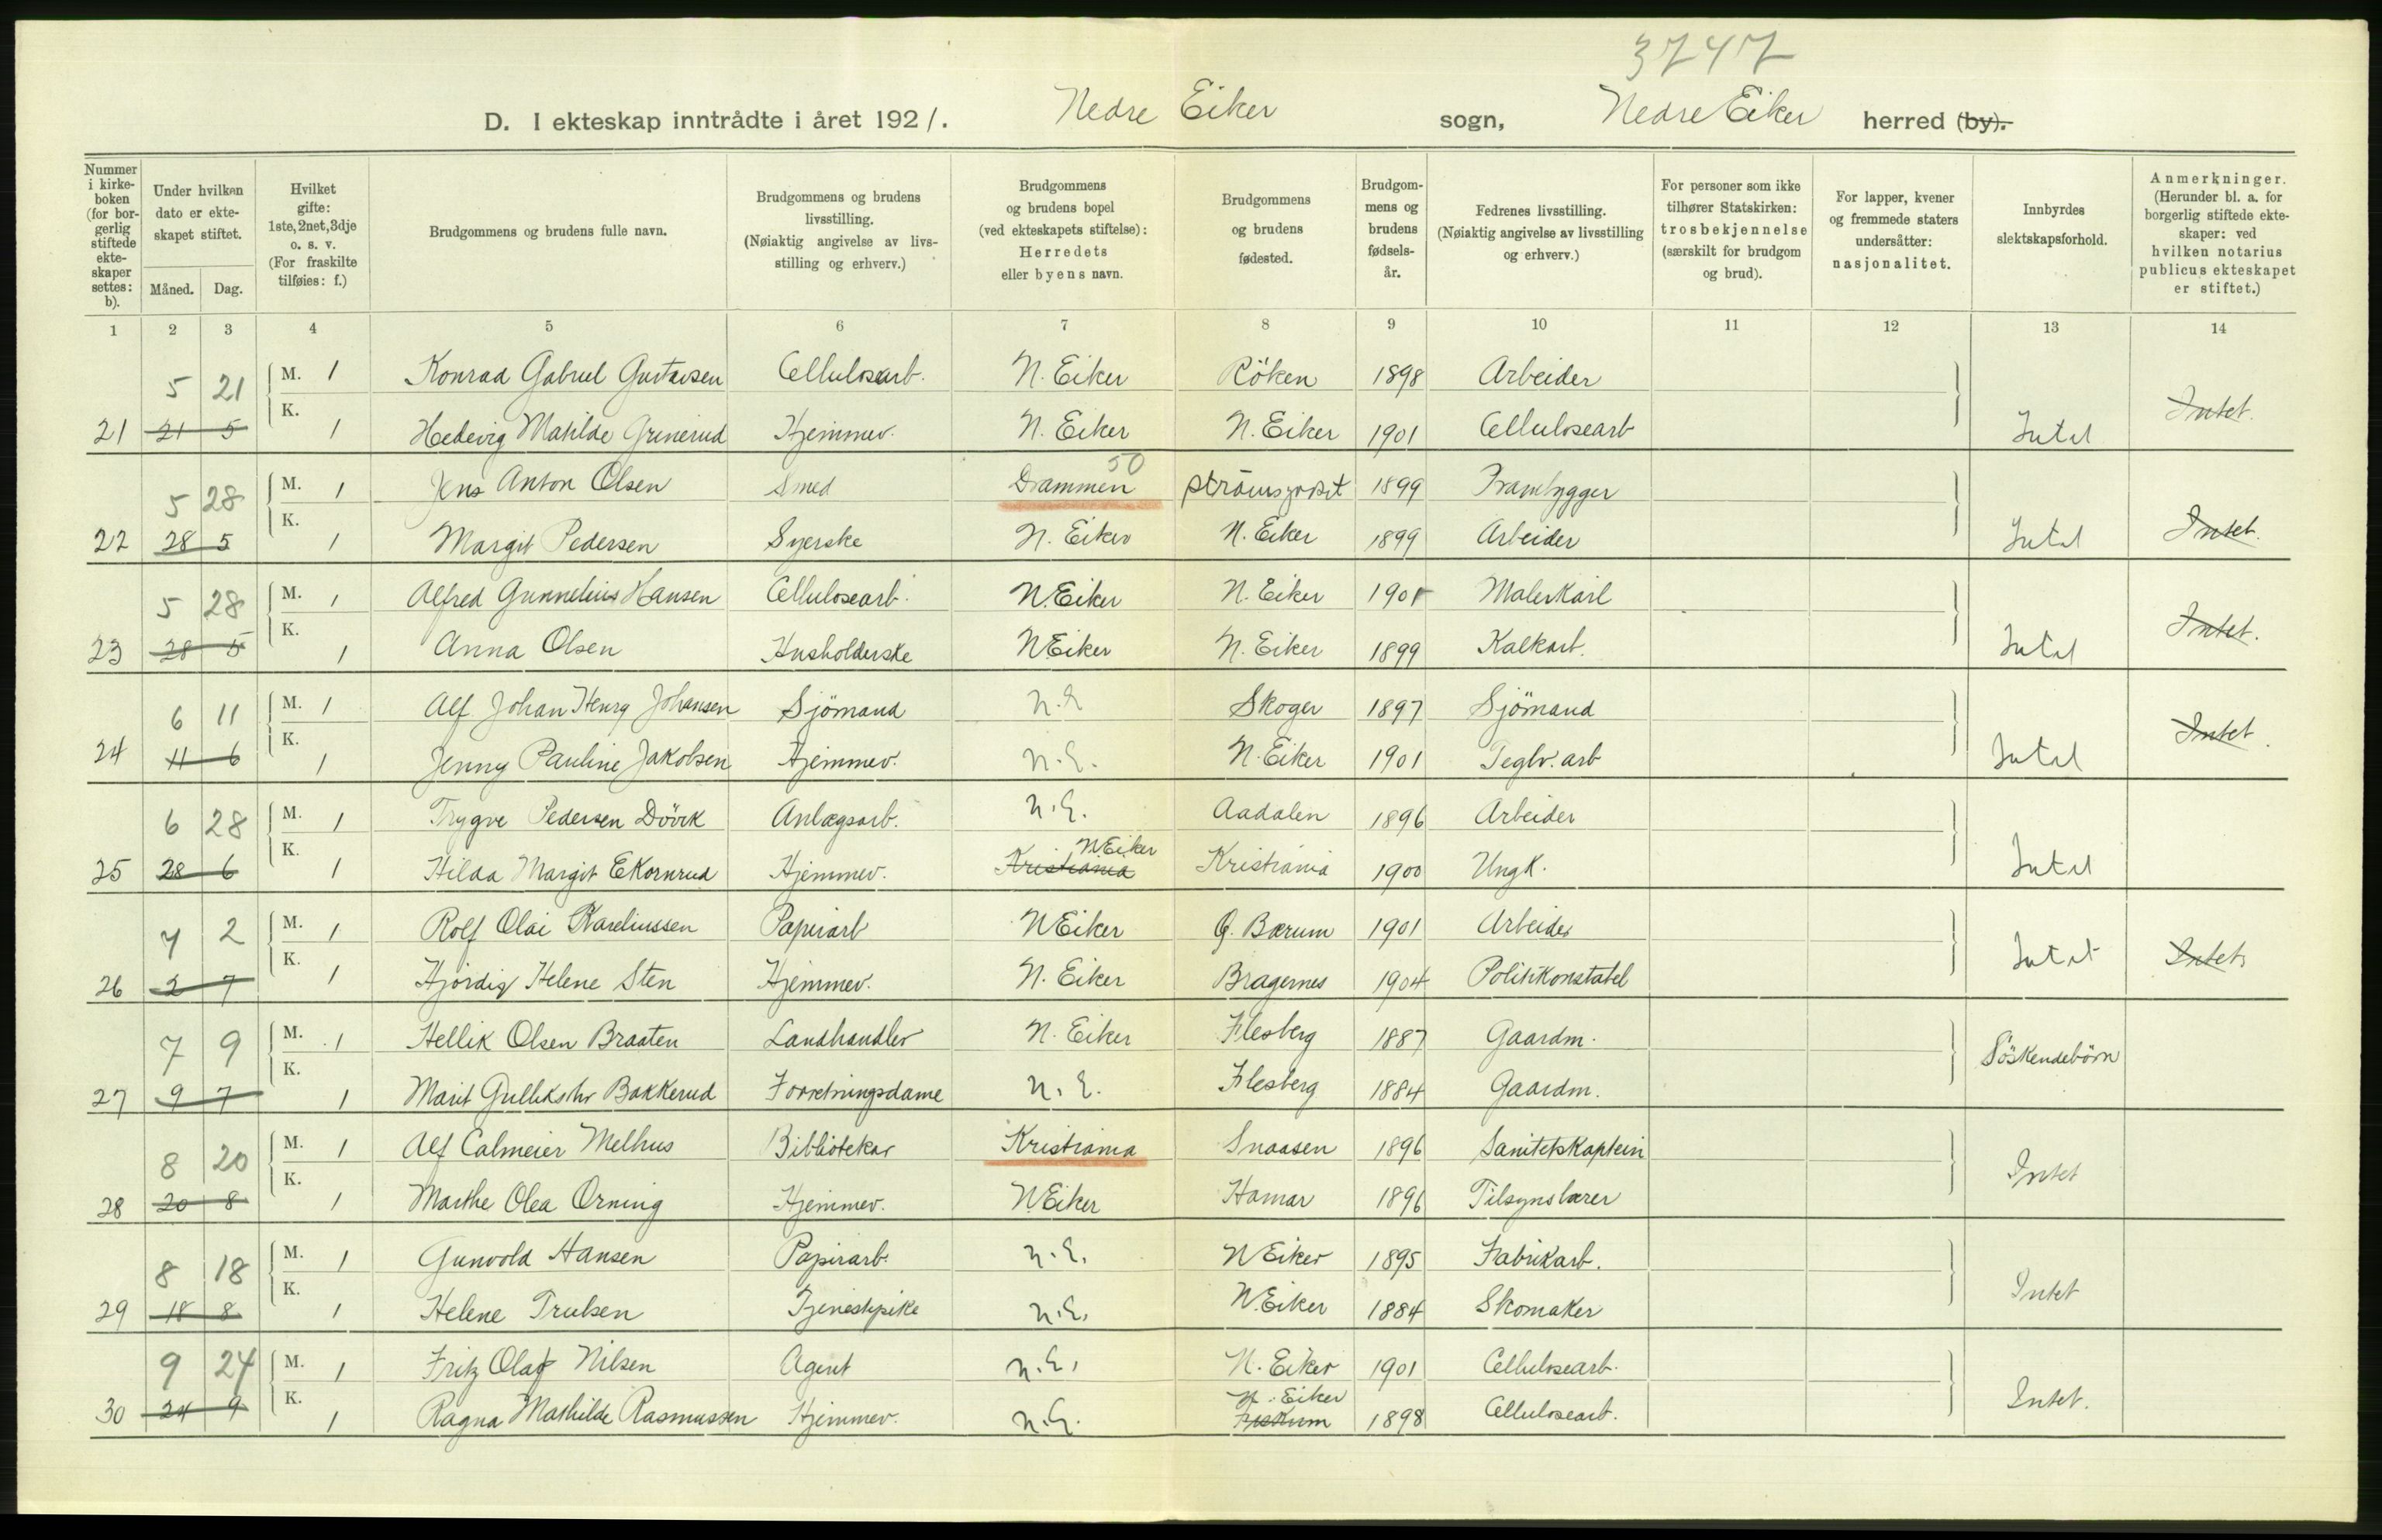 3747
D. I ekteskap inntrådte i året 1921. Nedre Eiker sogn, Nedre Eiker herred (by).
Nummer i kirke-boken (for bor-gerlig stiftede ekte-skaper settes: b).
Under hvilken dato er ekte-skapet stiftet.
Måned. Dag.
Hvilket gifte: 1ste, 2net, 3dje o. s. v. (For fraskilte tilføies: f.)
Brudgommens og brudens fulle navn.
Brudgommens og brudens livsstilling. (Nøiaktig angivelse av livs-stilling og erhverv.)
Brudgommens og brudens bopel (ved ekteskapets stiftelse): Herredets eller byens navn.
Brudgommens og brudens fødested.
Brudgom-mens og brudens fødsels-år.
Fedrenes livsstilling. (Nøiaktig angivelse av livsstilling og erhverv.)
For personer som ikke tilhører Statskirken: trosbekjennelse (særskilt for brudgom og brud).
For lapper, kvener og fremmede staters undersåtter: nasjonalitet.
Innbyrdes slektskapsforhold.
Anmerkninger. (Herunder bl. a. for borgerlig stiftede ekte-skaper: ved hvilken notarius publicus ekteskapet er stiftet.)
1 2 3 4 5 6 7 8 9 10 11 12 13 14
5 21 M. 1 Konrad Gabriel Gustavsen Cellulosearb. N. Eiker Röken 1898 Arbeider
21 21 5 K. 1 Hedevig Matilde Grinerud Hjemmev. N. Eiker N. Eiker 1901 Cellulosearb Intet Intet.
50
5 28 M. 1 Jens Anton Olsen Smed Drammen Strömsgodset 1899 Frambygger
22 28 5 K. 1 Margit Pedersen Syerske N. Eiker N. Eiker 1899 Arbeider Intet Intet.
5 28 M. 1 Alfred Gunnelius Hansen Cellulosearb. N. Eiker N. Eiker 1901 Malerkarl
23 28 5 K. 1 Anna Olsen Husholderske N Eiker N. Eiker 1899 Kalkarb. Intet Intet.
6 11 M. 1 Alf Johan Henry Johansen Sjömand N.E Skoger 1897 Sjömand
24 11 6 K. 1 Jenny Pauline Jakobsen Hjemmev. N.E. N. Eiker 1901 Teglv. arb Intet Intet.
6 28 M. 1 Trygve Pedersen Dövik Anlægsarb. N.E. Aadalen 1896 Arbeider
N Eiker
25 28 6 K. 1 Hilda Margit Ekornrud Hjemmev. Kristiania Kristiania 1900 Ungk. Intet
7 2 M. 1 Rolf Olai Kareliussen Papirarb N Eiker Ø. Bærum 1901 Arbeider
26 2 7 K. 1 Hjördis Helene Sten Hjemmev. N. Eiker Bragernes 1904 Politikonstabel Intet Intet
7 9 M. 1 Hellik Olsen Braaten Landhandler N. Eiker Flesberg 1887 Gaardm.
27 9 7 K. 1 Marit Gulliksdtr Bakkerud Forretningsdame N.E. Flesberg 1884 Gaardm. Söskendebörn
8 20 M. 1 Alf Calmeier Melhus Bibliotekar Kristiania Snaasen 1896 Sanitetskaptein
28 20 8 K. 1 Marthe Olea Orning Hjemmev. N Eiker Hamar 1896 Tilsynslærer Intet
8 18 M. 1 Gunvold Hansen Papirarb. N.E. N Eiker 1895 Fabrikarb.
29 18 8 K. 1 Helene Trulsen Tjenestepike N.E. N. Eiker 1884 Skomaker Intet
9 24 M. 1 Fritz Olaf Nilsen Agent N.E. N. Eiker 1901 Cellulosearb.
N. Eiker
30 24 9 K. 1 Ragna Mathilde Rasmussen Hjemmev. N.E. 1898 Cellulosearb. Intet.